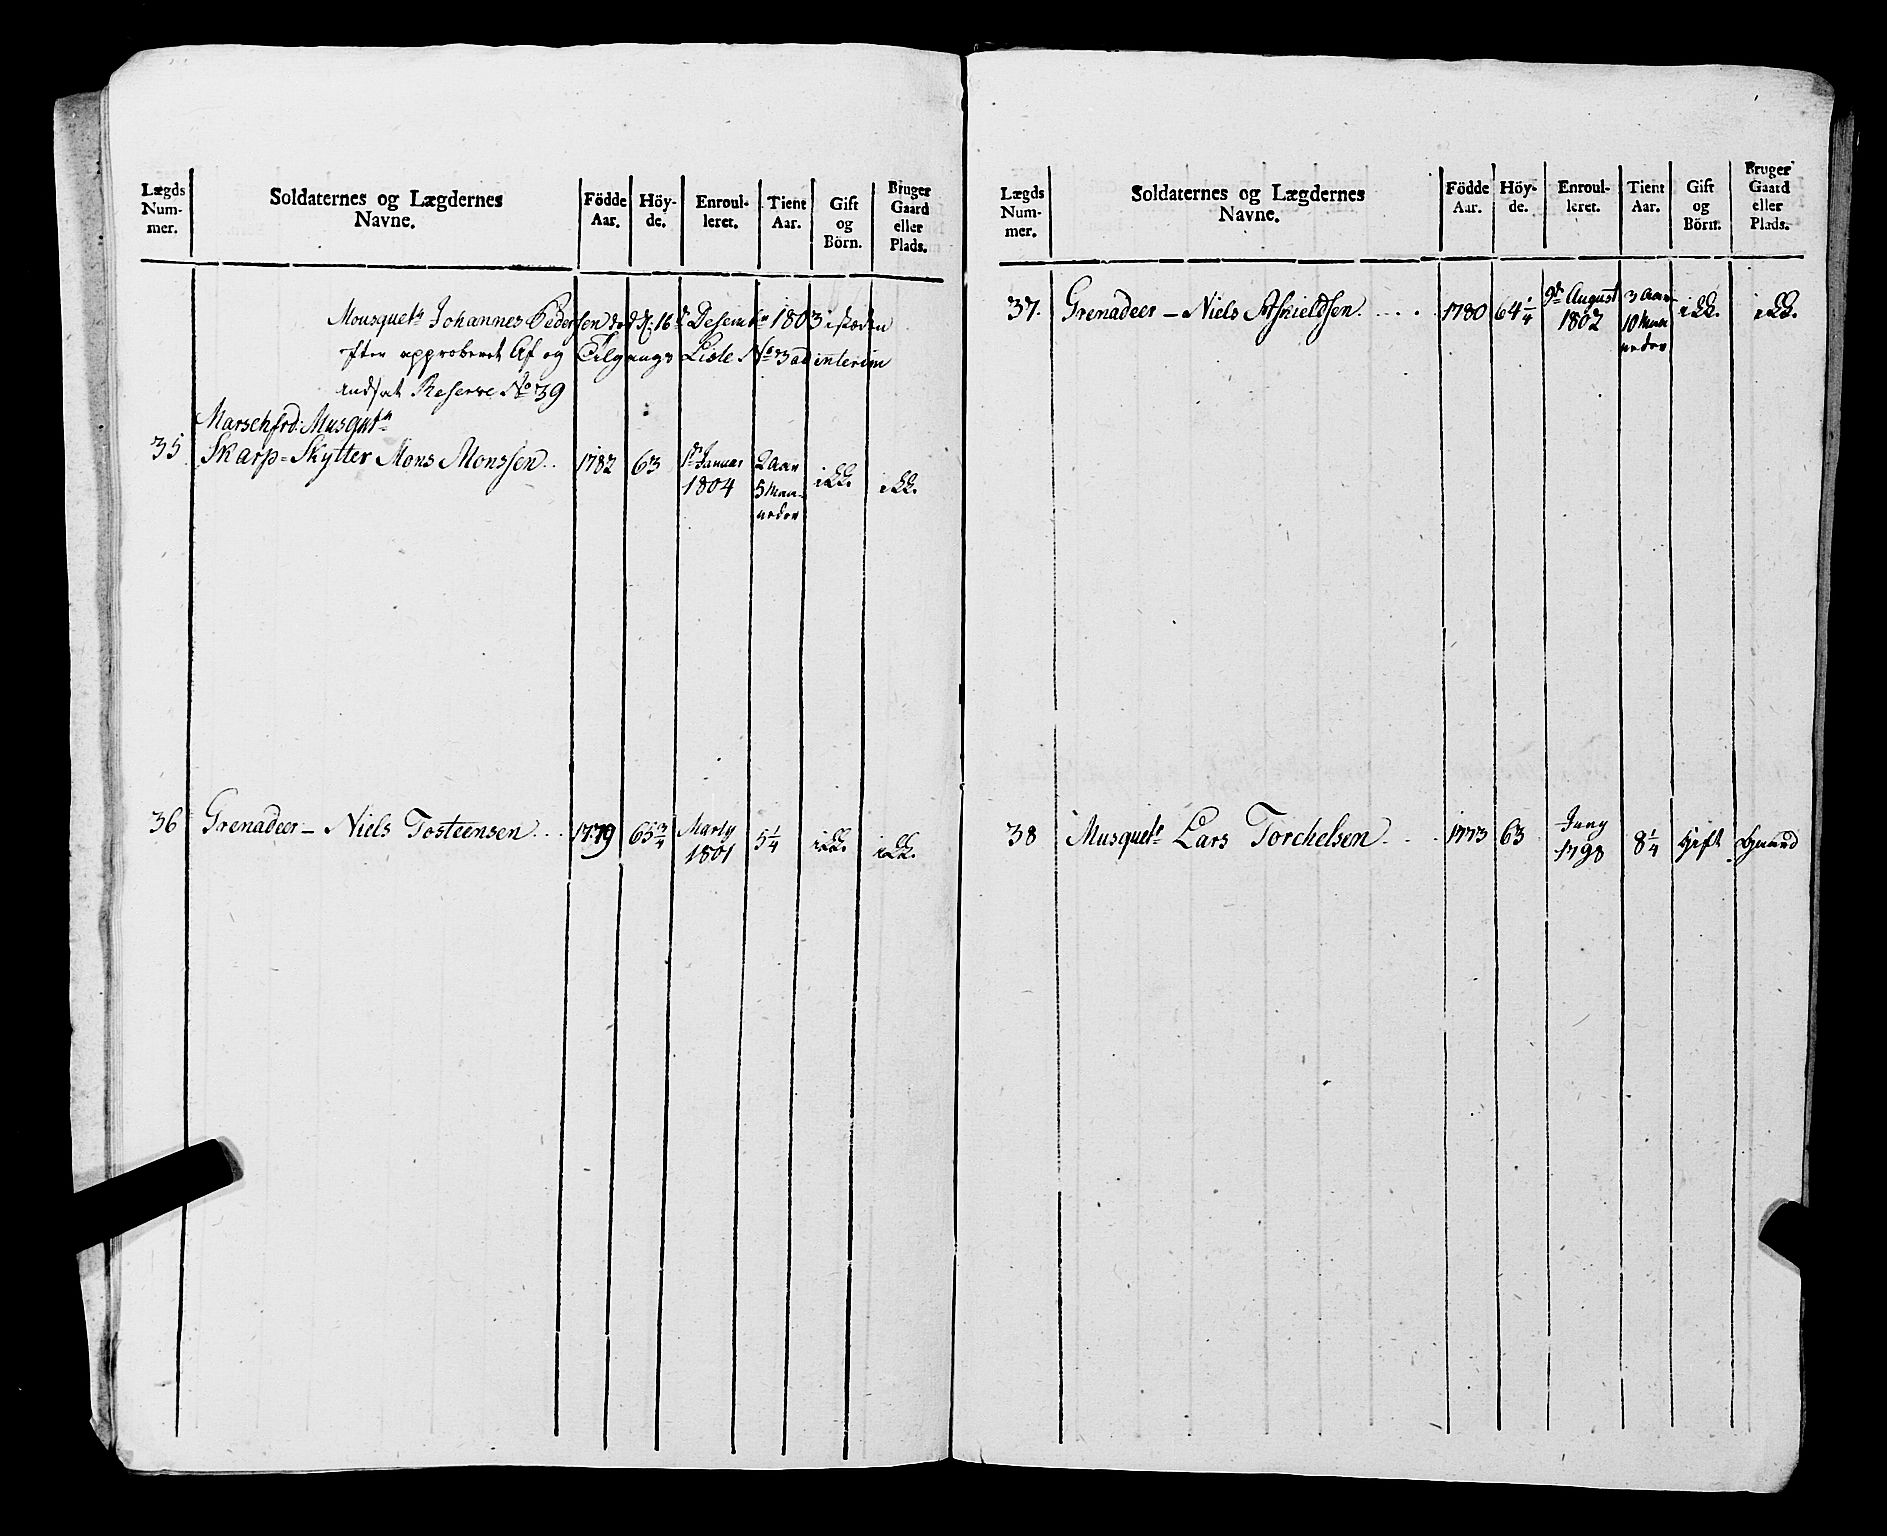 Lægds Num- mer. Soldaternes og Lægdernes Navne. Födde Aar. Höy- de. Enroul- leret. Tient Aar. Gift og Börn. Bruger Gaard eller Plads.
Mousquetr Johannes Pedersen 16 Desembr 1803
efter approberet Af og Tilgangs Liste No 3 ad interim
indsat Reserve No 39
Marschfrd: Musqutr
35 Skarp-Skytter Mons Monssen.. 1782 63 1te Januar 1804 2 Aar 5 Maaneder ikk. ikk.
36 Grenadeer – Niels Tosteensen... 1779 65 3/4 Marty 1801 5 1/4 ikk. ikk.
Lægds Num- mer. Soldaternes og Lægdernes Navne. Födde Aar. Höy- de. Enroul- leret. Tient Aar. Gift og Börn. Bruger Gaard eller Plads.
37. Grenadeer – Niels Askieldsen.... 1780 64 1/4 August 1802 3 Aar 10 Maaneder ikk. ikk.
38 Musquetr Lars Torchelsen... 1773 63 Juny 1798 8 1/4 Gift Gaard